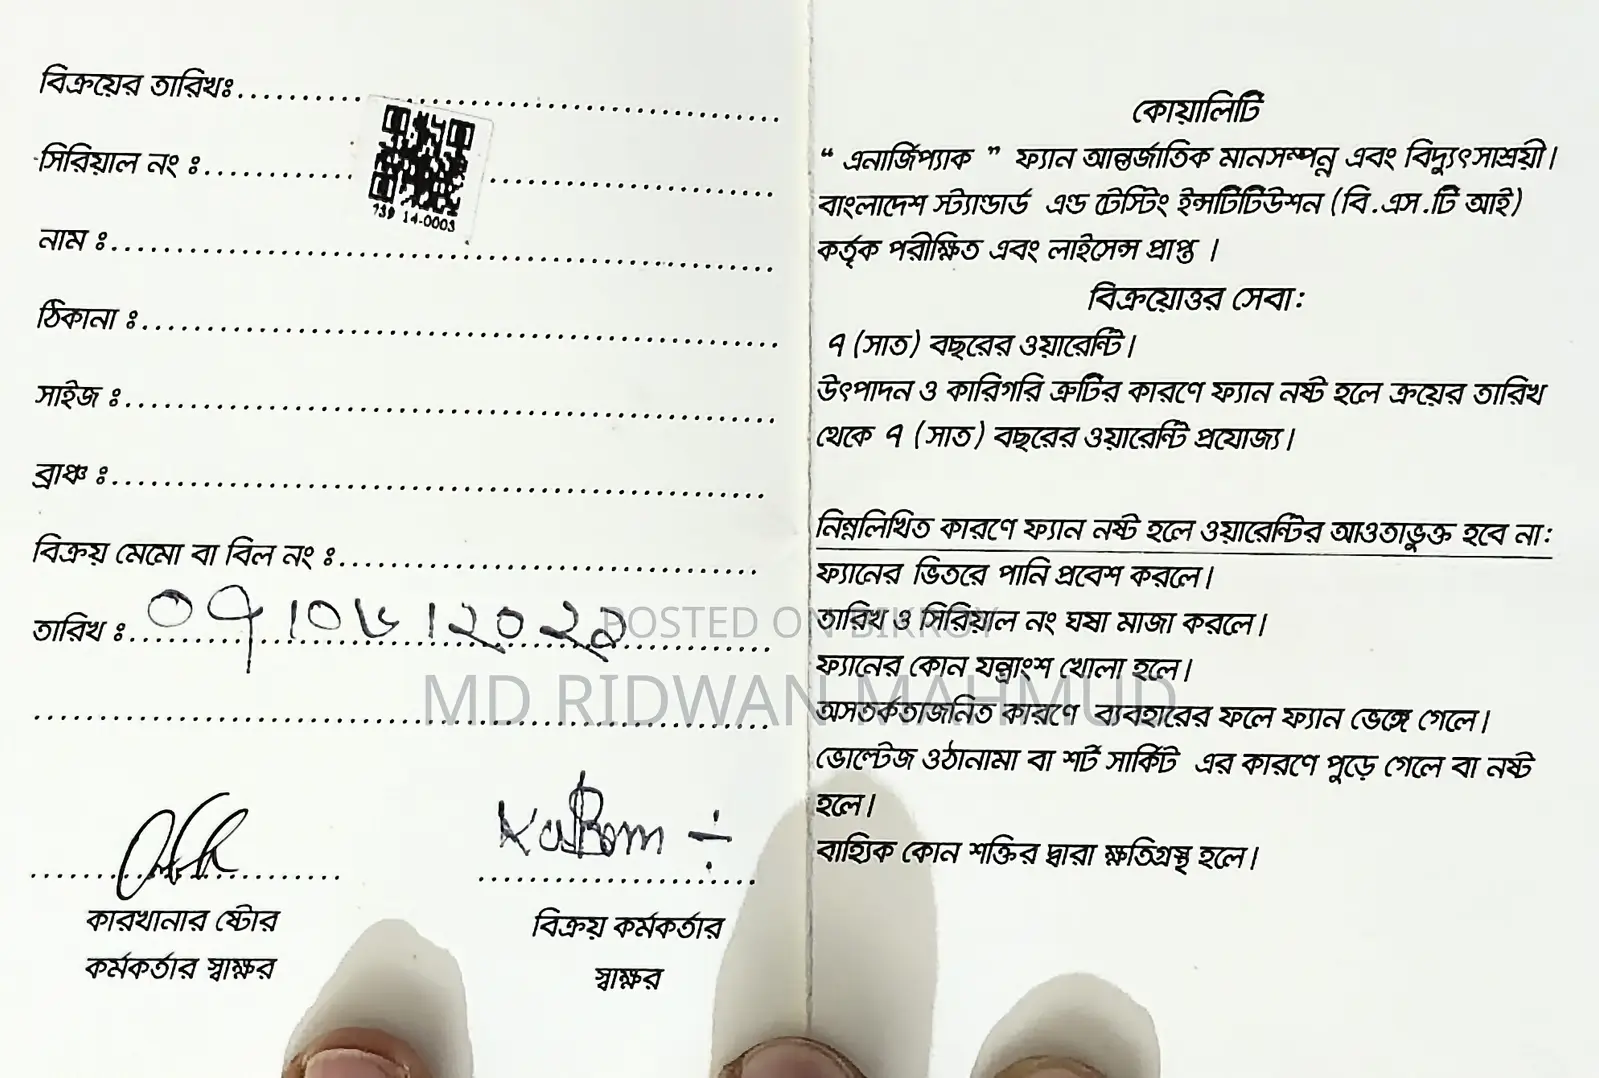 বিক্রয়ের তারিখঃ
সিরিয়াল নং ঃ
739 14-0003
নাম ঃ
ঠিকানা ঃ
সাইজ ঃ
ব্রাঞ্চ ঃ
বিক্রয় মেমো বা বিল নং ঃ
তারিখ ঃ ০৭/০৬/২০২২
কারখানার ষ্টোর
কর্মকর্তার স্বাক্ষর
বিক্রয় কর্মকর্তার
স্বাক্ষর
কোয়ালিটি
“ এনার্জিপ্যাক ” ফ্যান আন্তর্জাতিক মানসম্পন্ন এবং বিদ্যুৎসাশ্রয়ী।
বাংলাদেশ স্ট্যান্ডার্ড এণ্ড টেস্টিং ইন্সটিটিউশন (বি.এস.টি আই)
কর্তৃক পরীক্ষিত এবং লাইসেন্স প্রাপ্ত ।
বিক্রয়োত্তর সেবা:
৭ (সাত) বছরের ওয়ারেন্টি।
উৎপাদন ও কারিগরি ত্রুটির কারণে ফ্যান নষ্ট হলে ক্রয়ের তারিখ
থেকে ৭ (সাত) বছরের ওয়ারেন্টি প্রযোজ্য।
নিম্নলিখিত কারণে ফ্যান নষ্ট হলে ওয়ারেন্টির আওতাভুক্ত হবে না:
ফ্যানের ভিতরে পানি প্রবেশ করলে।
তারিখ ও সিরিয়াল নং ঘষা মাজা করলে।
ফ্যানের কোন যন্ত্রাংশ খোলা হলে।
অসতর্কতাজনিত কারণে ব্যবহারের ফলে ফ্যান ভেঙ্গে গেলে।
ভোল্টেজ ওঠানামা বা শর্ট সার্কিট এর কারণে পুড়ে গেলে বা নষ্ট
হলে।
বাহ্যিক কোন শক্তির দ্বারা ক্ষতিগ্রস্থ হলে।
POSTED ON BIKROY
MD RIDWAN MAHMUD